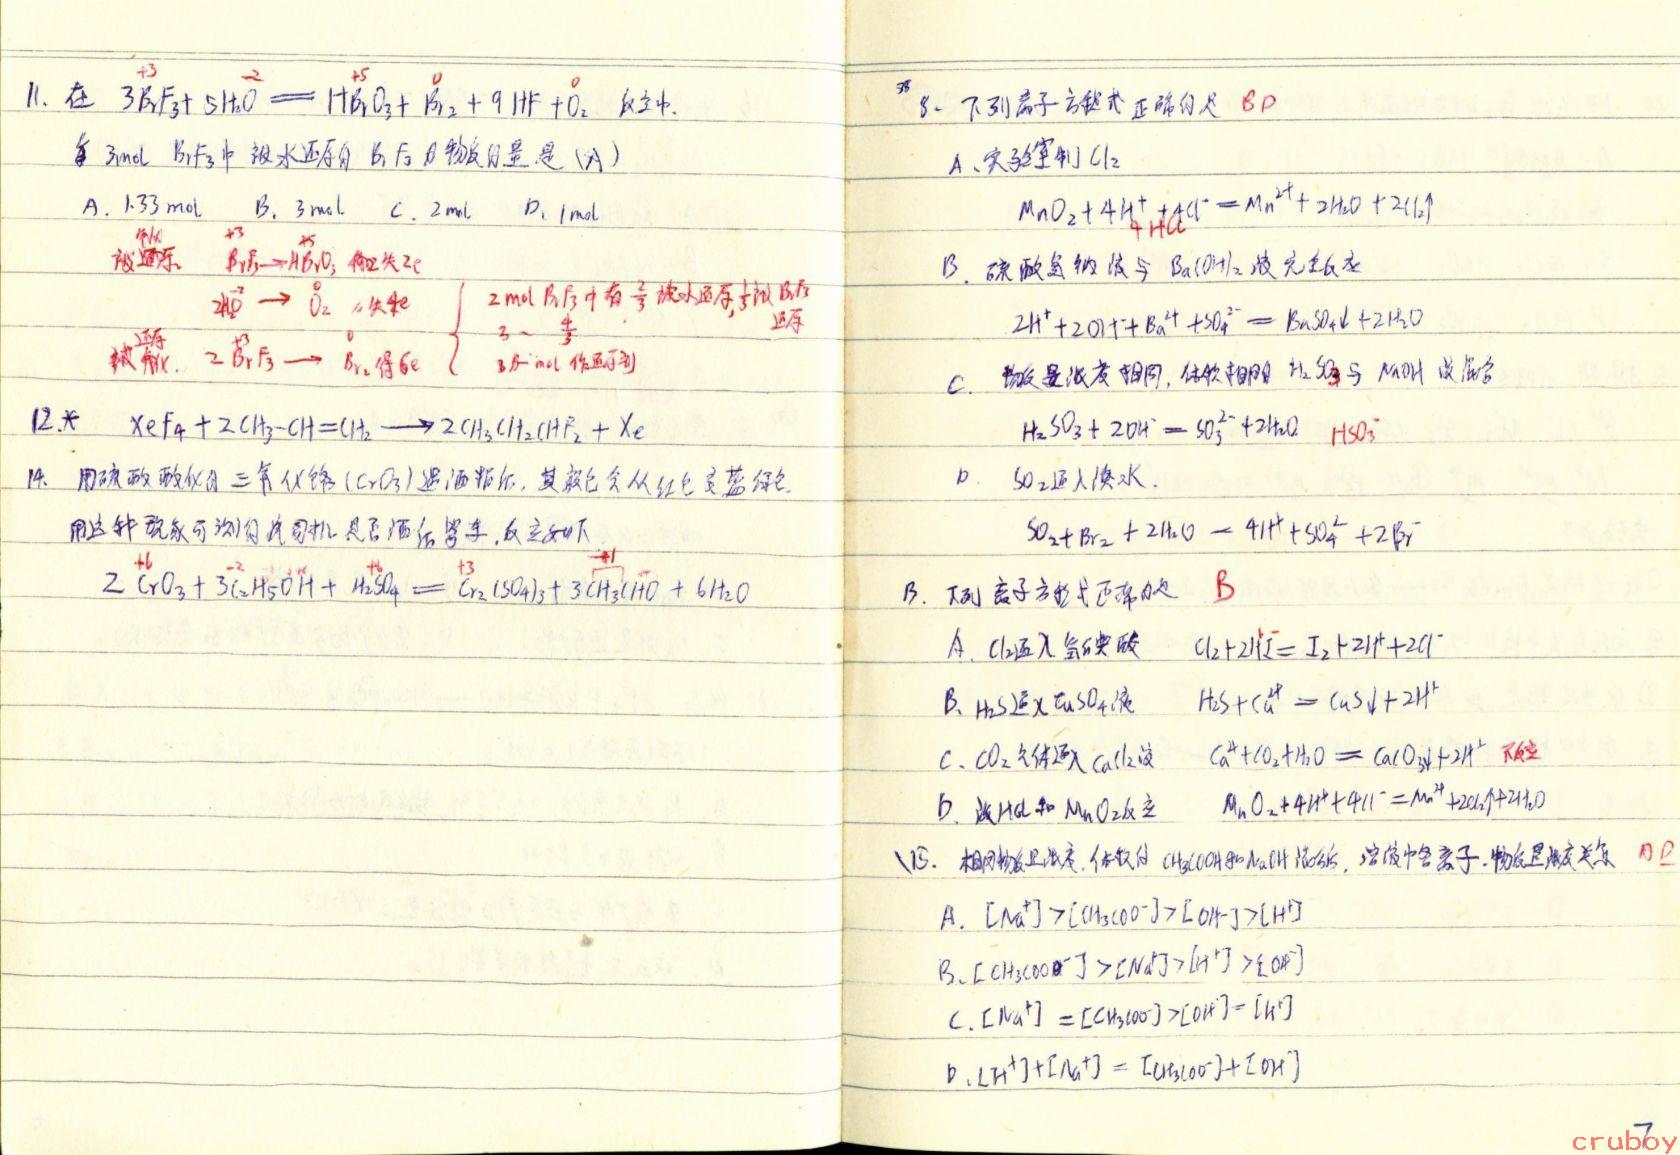 +3 -2 +5 0 0
11. 在 3BrF3 + 5H2O == HBrO3 + Br2 + 9HF + O2 反应中.
3mol BrF3中 被水还原的 BrF3 的物质的量是 (A)
A. 1.33 mol B. 3mol C. 2mol D. 1mol
+3 +5
BrF3 → HBrO3 失2e
2H2O → O2 失4e
2mol BrF3中有 2/3 被水还原, 1/3 被 BrF3 还原
3 ~ 4/3
还原
+3 0
2BrF3 → Br2 得6e
12.* XeF4 + 2CH3-CH=CH2 → 2CH3CH2CHF2 + Xe
14. 用硫酸酸化的三氧化铬 (CrO3) 遇酒精后, 其颜色会从红色变蓝绿色
用这种现象可测得汽司机是否酒后驾车, 反应如下
+6 -2 +6 +3 +1
2CrO3 + 3C2H5OH + H2SO4 == Cr2(SO4)3 + 3CH3CHO + 6H2O
8. 下列离子方程式正确的是 BD
A. 实验室制Cl2
MnO2 + 4H+ + 4Cl- = Mn2+ + 2H2O + 2Cl2↑
4HCl
B. 硫酸氢钠液与 Ba(OH)2 液完全反应
2H+ + 2OH- + Ba2+ + SO42- = BaSO4↓ + 2H2O
C. 物质量浓度相同, 体积相同的 H2SO3 与 NaOH 液混合
H2SO3 + 2OH- = SO32- + 2H2O HSO3-
D. SO2通入溴水.
SO2 + Br2 + 2H2O = 4H+ + SO42- + 2Br-
13. 下列离子方程式正确的是 B
A. Cl2通入氢碘酸 Cl2 + 2HI = I2 + 2H+ + 2Cl-
B. H2S通入CuSO4液 H2S + Cu2+ = CuS↓ + 2H+
C. CO2气体通入CaCl2液 Ca2+ + CO2 + H2O == CaCO3↓ + 2H+ 不反应
D. 浓HCl和MnO2反应 MnO2 + 4H+ + 4Cl- = Mn2+ + 2Cl2↑ + 2H2O
15. 相同物质量浓度, 体积的 CH3COOH和NaOH混合后, 溶液中各离子.物质量浓度关系 AD
A. [Na+] > [CH3COO-] > [OH-] > [H+]
B. [CH3COO-] > [Na+] > [H+] > [OH-]
C. [Na+] = [CH3COO-] > [OH-] = [H+]
D. [H+] + [Na+] = [CH3COO-] + [OH-]
7
cruboy